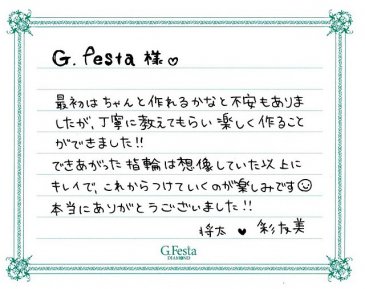 G. festa 様♡
最初はちゃんと作れるかなと不安もありま
したが、丁寧に教えてもらい楽しく作ること
ができました!!
できあがった指輪は想像していた以上に
キレイで、これからつけていくのが楽しみです☺
本当にありがとうございました!!
将太 ♥ 彩友美
G.Festa
DIAMOND